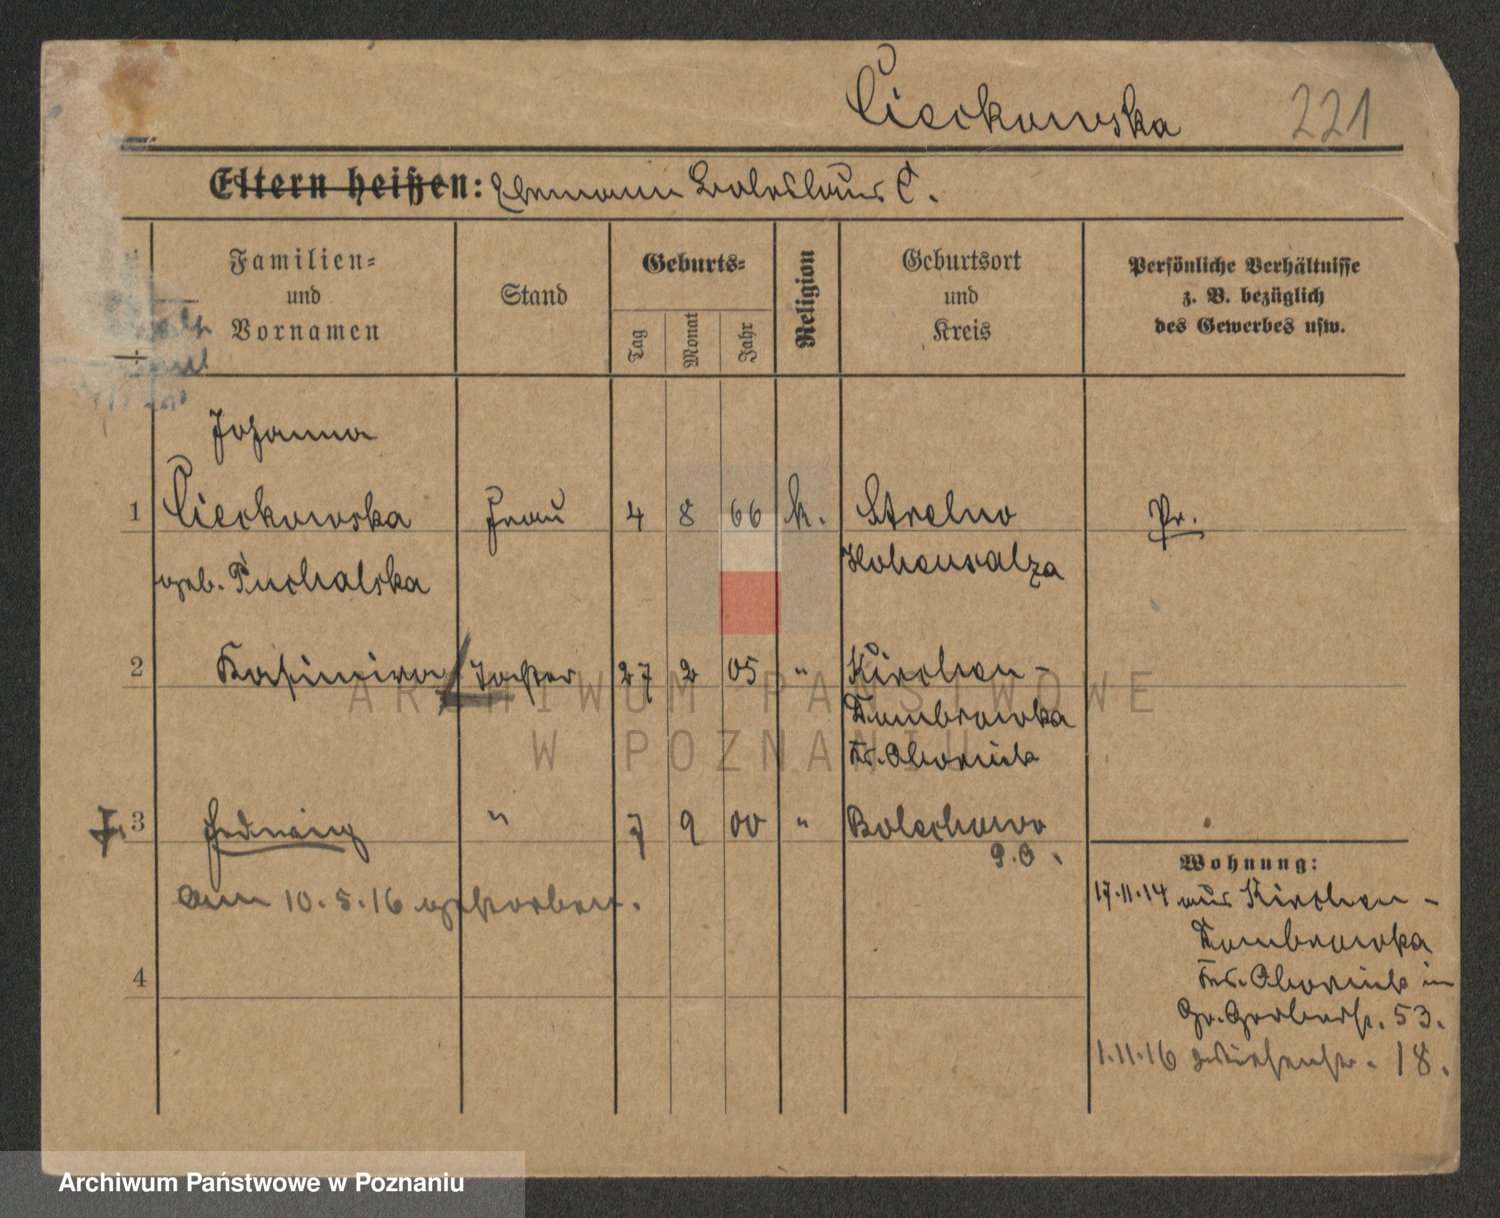 Cieckowska 221
Eltern heißen: Ehemann Boleslaus C.
Familien-
und
Vornamen
Stand
Geburts-
Tag
Monat
Jahr
Religion
Geburtsort
und
Kreis
Persönliche Verhältnisse
z. B. bezüglich
des Gewerbes usw.
Johanna
1 Cieckowska Frau 4 8 66 k. Strelno Pr.
geb. Puchalska Hohensalza
2 Kasimira Tochter 27 2 05 " Kirchen-
Dombrowka
Kr. Obornik
J. 3 Hedwig " 7 9 00 " Bolechowo
P. O.
am 10.5.16 gestorben.
4
Wohnung:
17.11.14 aus Kirchen-
Dombrowka
Kr. Obornik in
Gr. Gerberstr. 53.
1.11.16 Wiesenstr. 18.
ARCHIWUM PAŃSTWOWE
W POZNANIU
Archiwum Państwowe w Poznaniu